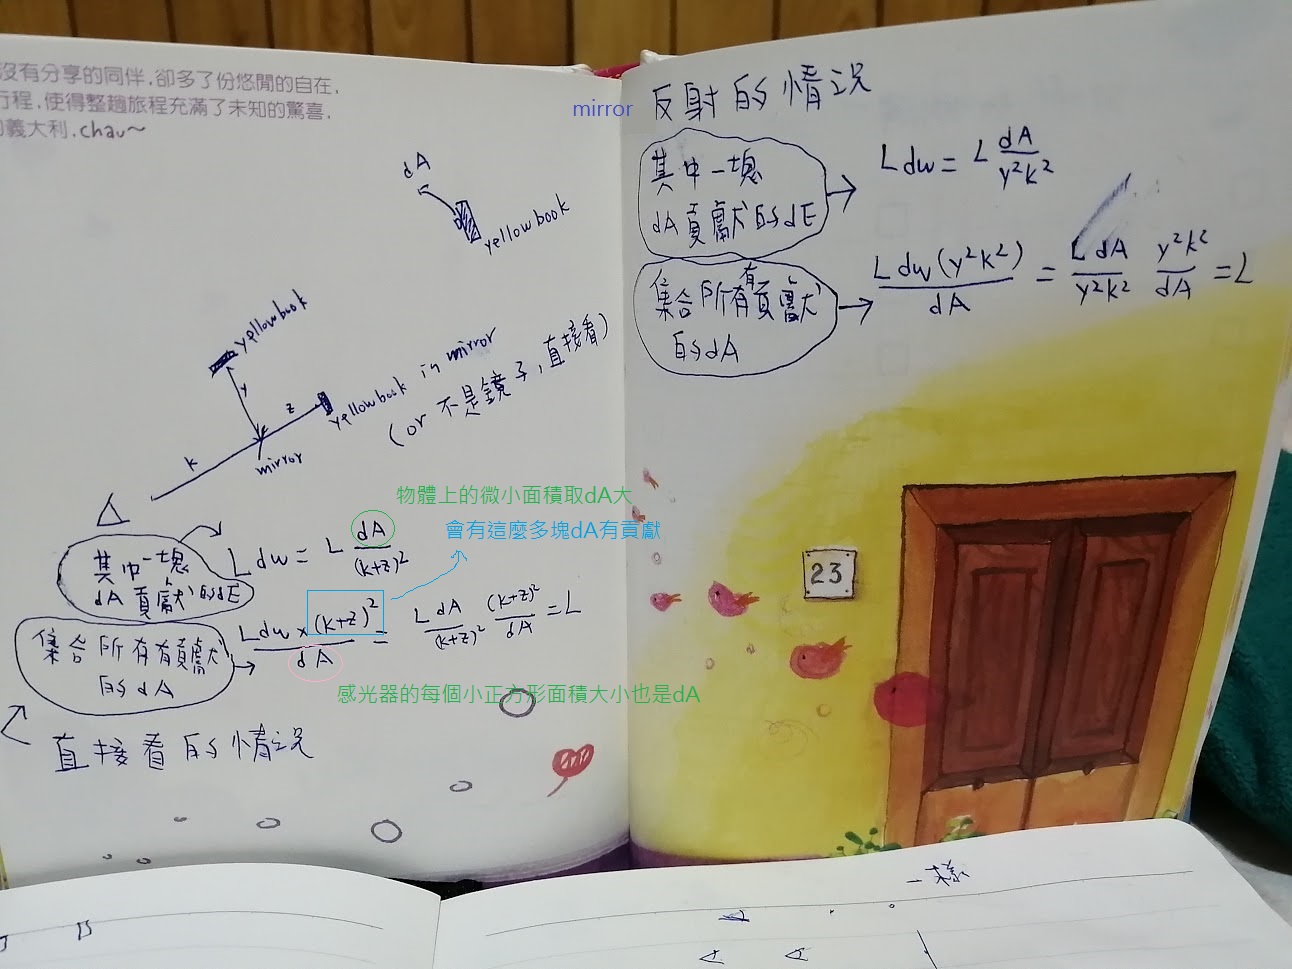 沒有分享的同伴,卻多了份悠閒的自在,
行程,使得整趟旅程充滿了未知的驚喜,
義大利,chau~
dA
yellow book
yellow book
y
z
yellow book in mirror
(or 不是鏡子,直接看)
k
mirror
物體上的微小面積取dA大
會有這麼多塊dA有貢獻
其中一塊
dA 貢獻的dE
L dw = L dA/(k+z)²
集合所有有貢獻
的dA
Ldw × (k+z)²/dA = L dA/(k+z)² (k+z)²/dA = L
感光器的每個小正方形面積大小也是dA
直接看的情況
mirror 反射的情況
其中一塊
dA貢獻的dE
L dw = L dA/y²k²
集合所有有貢獻
的dA
L dw (y²k²)/dA = L dA/y²k² y²k²/dA = L
23
一樣